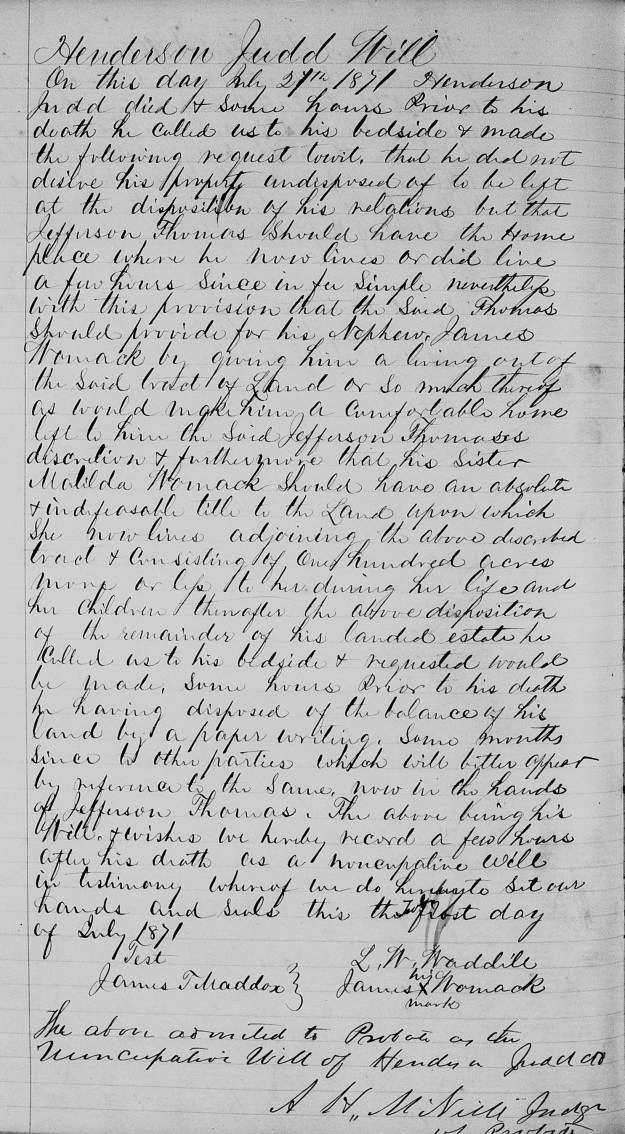 Henderson Judd Will
On this day July 27th 1871 Henderson
Judd died & some hours Prior to his
death he called us to his bedside & made
the following request towit. that he did not
desire his property undisposed of to be left
at the disposition of his relations but that
Jefferson Thomas Should have the Home
place where he now lives or did live
a few hours Since in fee Simple nevertheless
with this provision that the Said Thomas
Should provide for his Nephew, James
Womack by giving him a living out of
the Said tract of Land or So much thereof
as would make him a Comfortable home
left to him the Said Jefferson Thomases
discretion & furthermore that his Sister
Matilda Womack Should have an absolute
& indefeasable title to the Land upon which
She now lives adjoining the above described
tract & Consisting of One hundred acres
more or less to her during her life and
her Children thereafter the above disposition
of the remainder of his landed estate he
Called us to his bedside & requested would
be made, Some hours Prior to his death
he having disposed of the balance of his
land by a paper writing. Some months
Since to other parties which will bitter appear
by reference to the Same, now in the hands
of Jefferson Thomas. The above being his
Will & wishes we hereby record a few hours
after his death as a noncupative Will
in testimony whereof we do hereunto Set our
hands and Seals this the first day
of July 1871
Test L. W. Waddill
James T Maddox } James his X mark Womack
The above admited to Probate as the
Nuncupative Will of Henderson Judd
A H, McNeill Judge
of Probate